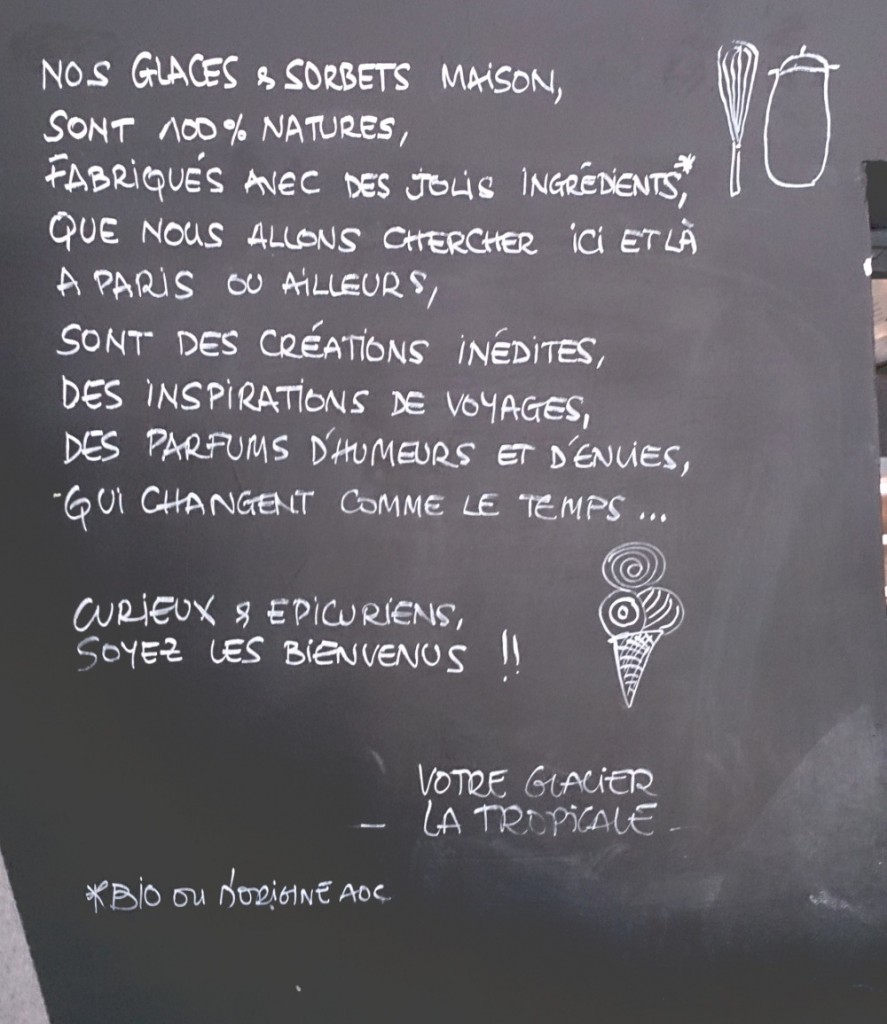 NOS GLACES & SORBETS MAISON,
SONT 100% NATURES,
FABRIQUÉS AVEC DES JOLIS INGRÉDIENTS*,
QUE NOUS ALLONS CHERCHER ICI ET LÀ
A PARIS OU AILLEURS,
SONT DES CRÉATIONS INÉDITES,
DES INSPIRATIONS DE VOYAGES,
DES PARFUMS D'HUMEURS ET D'ENVIES,
QUI CHANGENT COMME LE TEMPS ...
CURIEUX & EPICURIENS,
SOYEZ LES BIENVENUS !!
VOTRE GLACIER
- LA TROPICALE -
*BIO OU D'ORIGINE AOC